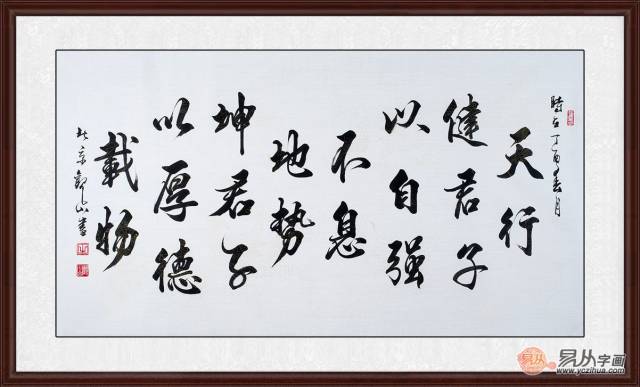 時在丁酉春月
天行
健君子
以自强
不息
地势
坤君子
以厚德
載物
北京郭山書
易从
易从字画
www.yczihua.com